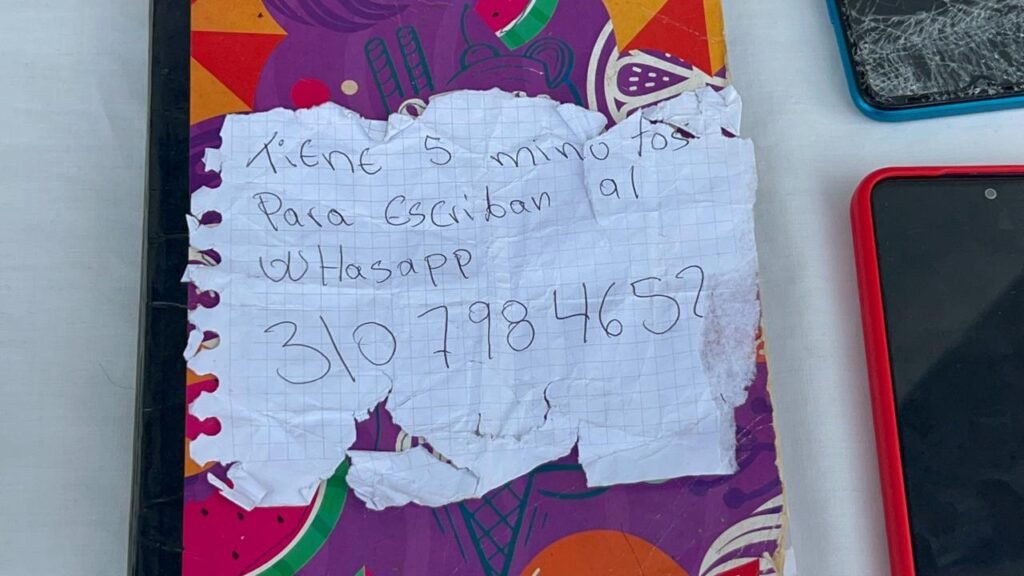 Tiene 5 minutos
Para Escriban al
WHasapp
310 798 4652